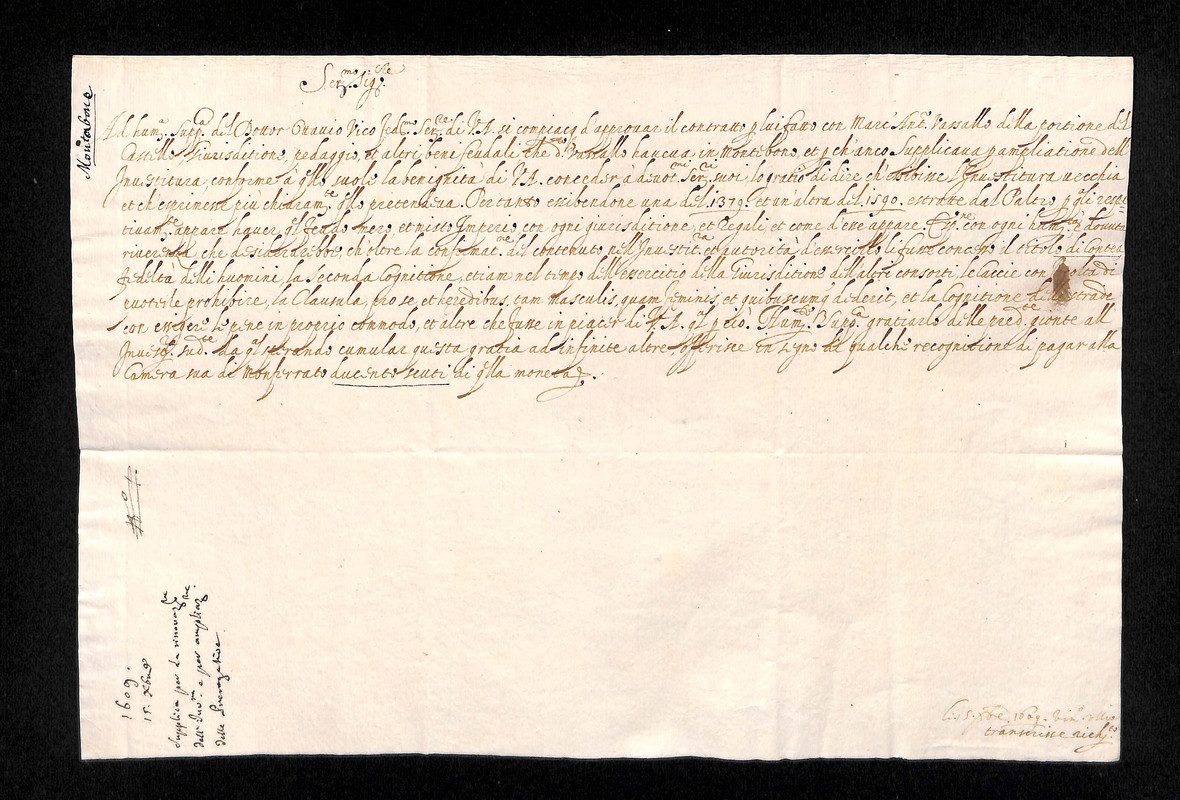 Montabone
Ser.mo Sig.re
Ad hum.a Supp.a del Dottor Ottavio Vico fed.mo Ser.re di V.A. si compiacq d'approvar il contratto p lui fatto con Marc' Ant.o Vassallo della portione del
Castello, Giurisditione, pedaggio, et altri beni feudali che d.o Vassallo haveva in Montebone, et p ch'anco supplicava p ampliatione dell
Investitura, conforme a q.llo suole la benignita di V.A. conceder a devot.mi Ser.ri suoi, lo gratiò di dire ch'essibisse l'Investitura vecchia
et ch'esprimesse piu chiaram.te q.llo pretendeva. Pertanto essibendone una del 1379. et un'altra del 1590. estratte dal
tivam.te appare haver q.l feudo mero, et misto Imperio, con ogni giurisditione, et Regali, et come d'esse appare. con ogni hum.tà, e dovuta
riverenza, che desiderarebbe, ch'oltre la confirmat.ne del contenuto nell'Investit.ra et autorità d'esse, se li fusse concesso il titolo di Conte, la
fedeltà delli huomini, la seconda cognitione, etiam nel tempo dell'essercitio della Giurisditione delli altri consorti, le caccie con di
puoterle prohibire, la Clausula, pro se, et heredibus, tam masculis, quam feminis, et quibuscumq dederit, et la Cognitione delle strade
con essiger le pene in proprio commodo, et altre che fusse in piacer di V.A. q.l p ciò Hum.te Supp.a gratiarlo delle pred.te gionte all
Invest.ra sud.ta da q.l sperando cumular questa gratia ad infinite altre, offerisce in segno di qualche recognitione di pagar alla
Camera sua di Monferrato ducento scuti di q.lla moneta.
1609.
15. Xbre
Supplica per la rinovaz.ne
dell'Inv.ra e per ampliaz.ne
delle Prerogative
Xbre 1609.
transcrisse